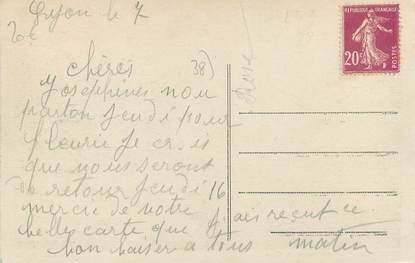 Lyon le 7
20c
38)
chères
Josephines nou
parton Jeudi pour
fleurie Je crois
que nous seront
de retour Jeudi 16
merci de votre
belle carte que j'ais recut ce
matin
bon baiser a tous
REPUBLIQUE FRANÇAISE
20c
POSTES